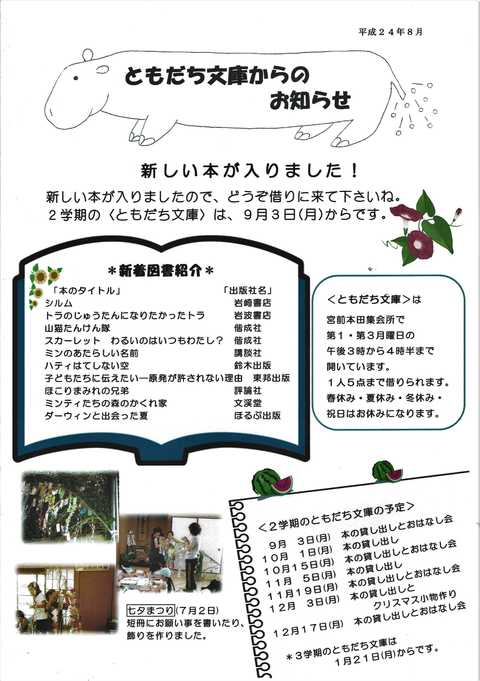 平成24年8月
ともだち文庫からの
お知らせ
新しい本が入りました！
新しい本が入りましたので、どうぞ借りに来て下さいね。
2学期の〈ともだち文庫〉は、9月3日(月)からです。
＊新着図書紹介＊
「本のタイトル」 「出版社名」
シルム 岩崎書店
トラのじゅうたんになりたかったトラ 岩波書店
山猫たんけん隊 偕成社
スカーレット わるいのはいつもわたし？ 偕成社
ミンのあたらしい名前 講談社
ハティはてしない空 鈴木出版
子どもたちに伝えたい―原発が許されない理由 東邦出版
ほこりまみれの兄弟 評論社
ミンティたちの森のかくれ家 文溪堂
ダーウィンと出会った夏 ほるぷ出版
＜ともだち文庫＞は
宮前本田集会所で
第1・第3月曜日の
午後3時から4時半まで
開いています。
1人5点まで借りられます。
春休み・夏休み・冬休み・
祝日はお休みになります。
七夕まつり(7月2日)
短冊にお願い事を書いたり、
飾りを作りました。
＜2学期のともだち文庫の予定＞
9月 3日(月) 本の貸し出しとおはなし会
10月 1日(月) 本の貸し出し
10月15日(月) 本の貸し出しとおはなし会
11月 5日(月) 本の貸し出し
11月19日(月) 本の貸し出しとおはなし会
12月 3日(月) 本の貸し出しと
クリスマス小物作り
12月17日(月) 本の貸し出しとおはなし会
＊3学期のともだち文庫は
1月21日(月)からです。